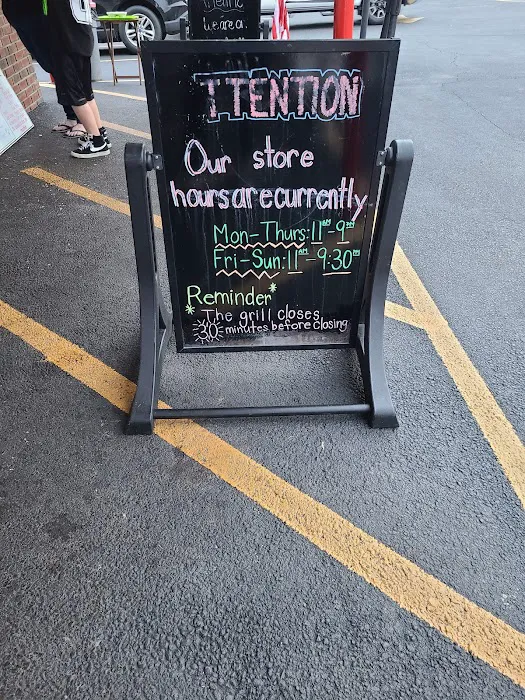 we are a
TTENTION
Our store
hours are currently
Mon-Thurs: 11AM-9PM
Fri-Sun: 11AM-9:30PM
Reminder*
* The grill closes
30 minutes before closing